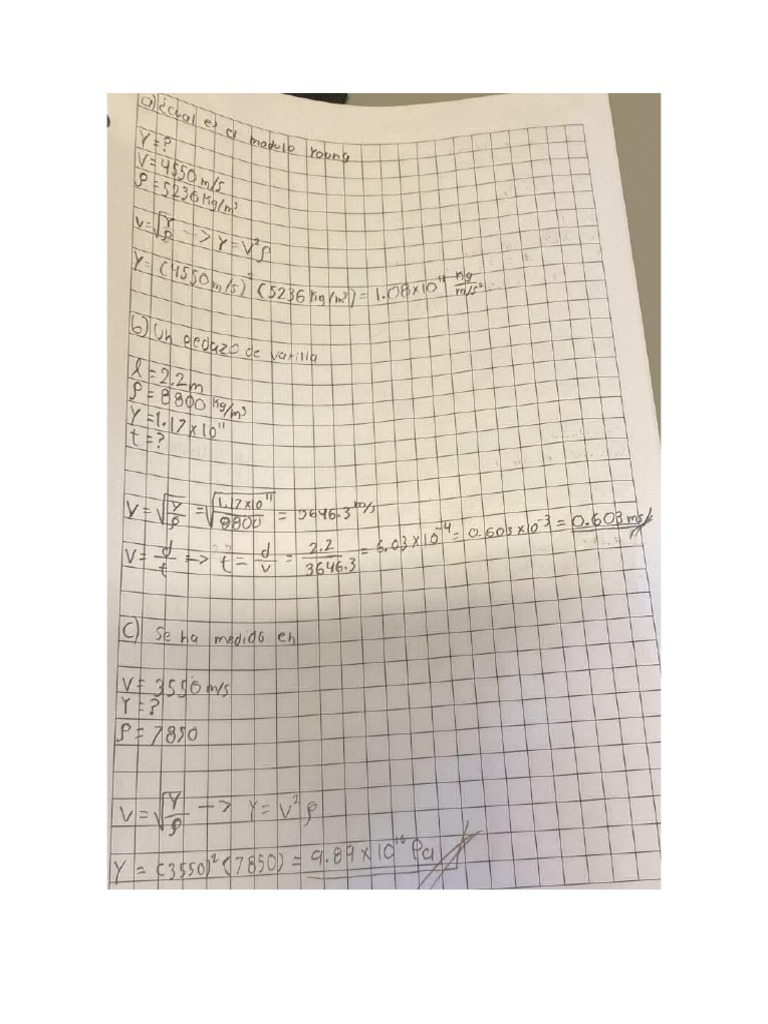 a) ¿cual es el modulo Young
Y = ?
V = 4550 m/s
ρ = 5236 Kg/m³
v = √(Y/ρ) --> Y = V²ρ
Y = (4550 m/s)² (5236 Kg/m³) = 1.08 x 10¹¹ kg/m/s²
b) Un pedazo de varilla
l = 2.2 m
ρ = 8800 Kg/m³
Y = 1.17 x 10¹¹
t = ?
V = √(Y/ρ) = √(1.17 x 10¹¹/8800) = 3646.3 m/s
V = d/t --> t = d/v = 2.2/3646.3 = 6.03 x 10⁻⁴ = 0.603 x 10⁻³ = 0.603 ms
c) Se ha medido en
V = 3550 m/s
Y = ?
ρ = 7850
V = √(Y/ρ) --> Y = V²ρ
Y = (3550)² (7850) = 9.89 x 10¹⁰ Pa